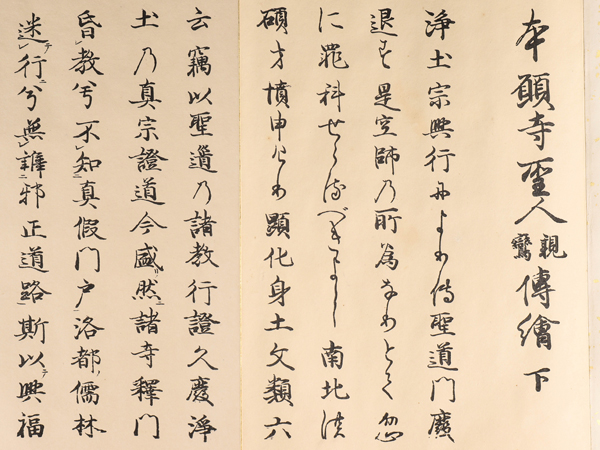 本願寺聖人親鸞傳繪 下
淨土宗興行によりて聖道門廢
退す是空師の所為なりとて忽
に罪科せらるべきよし南北
碩才憤申けり顯化身土文類六
云竊以聖道乃諸教行證久廢淨
土乃真宗證道今盛然諸寺釋門
昏教兮不知真假門戸洛都ノ儒林
迷行兮無辨邪正道路斯以興福